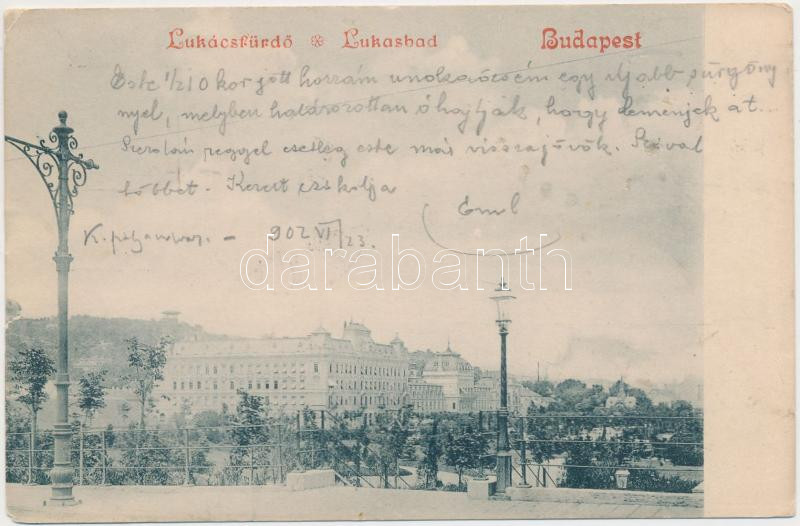 Lukácsfürdő ❊ Lukasbad Budapest
Este 1/210 kor jött hozzám unokaöcsém egy ujabb sürgöny
nyel, melyben határozottan óhajtják, hogy lemenjek át...
Szerdán reggel esetleg este már visszajövök. Szóval
többet. Kezeit csókolja
Emil
902 VI/23.
darabanth